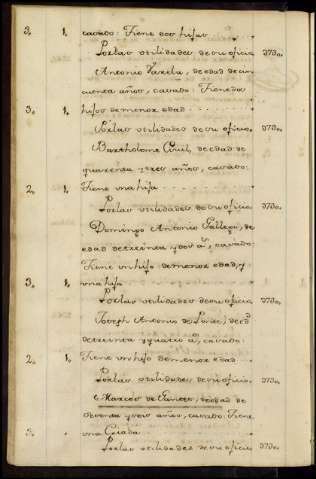 3. 1. casado. Tiene dos hijos
Por las utilidades de su oficio 370..
Antonio Varela, de edad de cin
cuenta años, casado. Tiene dos
3. 1. hijos de menor edad
Por las utilidades de su oficio 370..
Bartholome, de edad de
quarenta y tres años, casado.
2. 1. Tiene una hija
Por las utilidades de su oficio 370..
Domingo Antonio Gallego, de
edad de treinta y dos a.s, casado.
Tiene un hijo de menor edad, y
3. 1. una hija
Por las utilidades de su oficio 370..
Joseph Antonio de, de ed.d
de treinta y quatro a.s, casado.
2. 1. Tiene un hijo de menor edad
Por las utilidades de su oficio 370..
Marcos de, de edad de
y seis años, casado. Tiene
3. una Criada
Por las utilidades de su oficio 370..